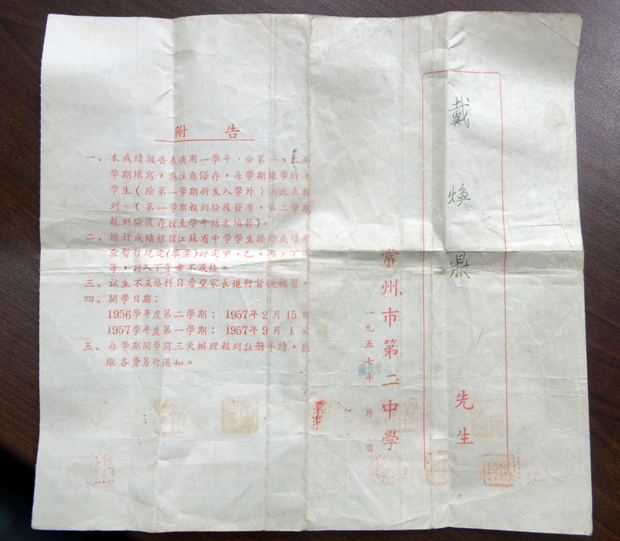 戴煥鼎 先生
常州市第二中學
一九五七年 月 日
附告
一、本成績報告表適用一學年，分第一、二兩
學期填寫，應注意保存，每學期開學時，
學生（除第一學期新生入學外）
到。（第一學期報到驗後發還，第二學期
報到驗後存校至學年結束填發）。
二、操行成績根據江蘇省中學學生操行成績
暫行規定（草案）評定甲、乙、丙、丁
等，列入丁等者不及格。
三、該生不及格科目希望家長進行督促補習。
四、開學日期：
1956學年度第二學期：1957年2月15日
1957學年度第一學期：1957年9月1日
五、每學期開學前三天辦理報到註册手續，
繳各費另行通知。